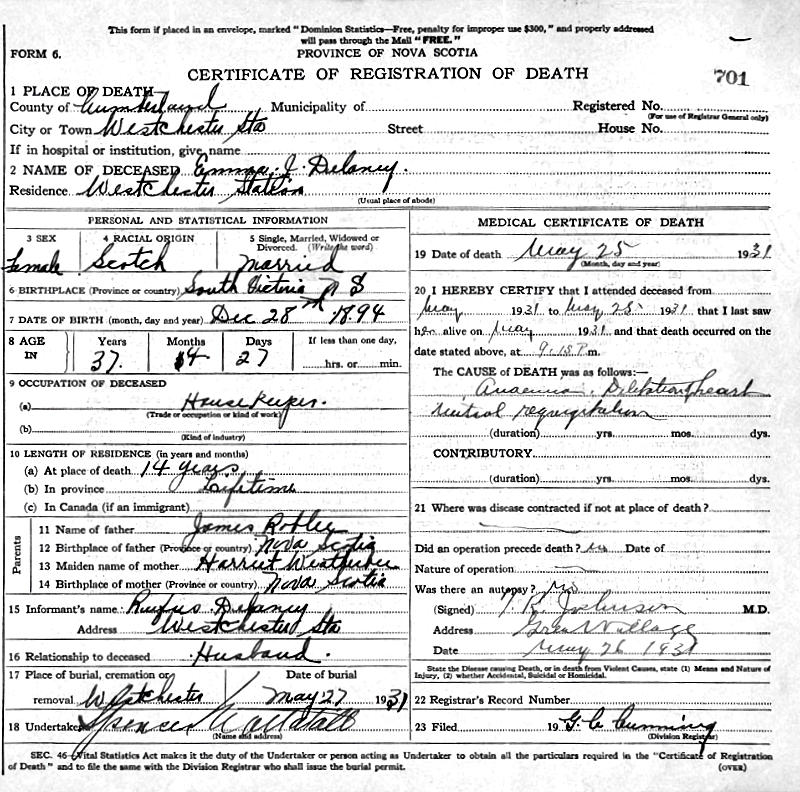 This form if placed in an envelope, marked "Dominion Statistics—Free, penalty for improper use $300," and properly addressed
will pass through the Mail "FREE."
FORM 6. PROVINCE OF NOVA SCOTIA
CERTIFICATE OF REGISTRATION OF DEATH 701
1 PLACE OF DEATH
County of Cumberland Municipality of Registered No.
(For use of Registrar General only)
City or Town Westchester Sta Street House No.
If in hospital or institution, give name
2 NAME OF DECEASED Emma J. Delaney.
Residence Westchester Station
(Usual place of abode)
PERSONAL AND STATISTICAL INFORMATION
3 SEX 4 RACIAL ORIGIN 5 Single, Married, Widowed or
Divorced. (Write the word)
Female Scotch Married
6 BIRTHPLACE (Province or country) South Victoria N S
7 DATE OF BIRTH (month, day and year) Dec 28th 1894
8 AGE IN Years Months Days If less than one day,
37 4 27 hrs. or min.
9 OCCUPATION OF DECEASED
(a) House Keeper.
(Trade or occupation or kind of work)
(b)
(Kind of industry)
10 LENGTH OF RESIDENCE (in years and months)
(a) At place of death 14 years
(b) In province Lifetime
(c) In Canada (if an immigrant)
Parents
11 Name of father James Roblee
12 Birthplace of father (Province or country) Nova Scotia
13 Maiden name of mother Harriet
14 Birthplace of mother (Province or country) Nova Scotia
15 Informant's name Rufus Delaney
Address Westchester Sta
16 Relationship to deceased Husband.
17 Place of burial, cremation or Date of burial
removal Westchester May 27 1931
18 Undertaker Spencer
(Name and address)
MEDICAL CERTIFICATE OF DEATH
19 Date of death May 25 1931
(Month, day and year)
20 I HEREBY CERTIFY that I attended deceased from
May 1931 to May 25 1931 that I last saw
her alive on May 1931 and that death occurred on
date stated above, at 9.15 P. m.
The CAUSE of DEATH was as follows:—
Anaemia. Dilation of heart
Mitral regurgitation
(duration) yrs. mos. dys.
CONTRIBUTORY
(duration) yrs. mos. dys.
21 Where was disease contracted if not at place of death?
Did an operation precede death? no Date of
Nature of operation
Was there an autopsy? no
(Signed) Johnson M.D.
Address Great Village
Date May 26 1931
State the Disease causing Death, or in death from Violent Causes, state (1) Means and Nature of
Injury, (2) whether Accidental, Suicidal or Homicidal.
22 Registrar's Record Number
23 Filed 19 G. C. Cumming
(Division Registrar)
SEC. 46—Vital Statistics Act makes it the duty of the Undertaker or person acting as Undertaker to obtain all the particulars required in the "Certificate of Registration
of Death" and to file the same with the Division Registrar who shall issue the burial permit. (OVER)